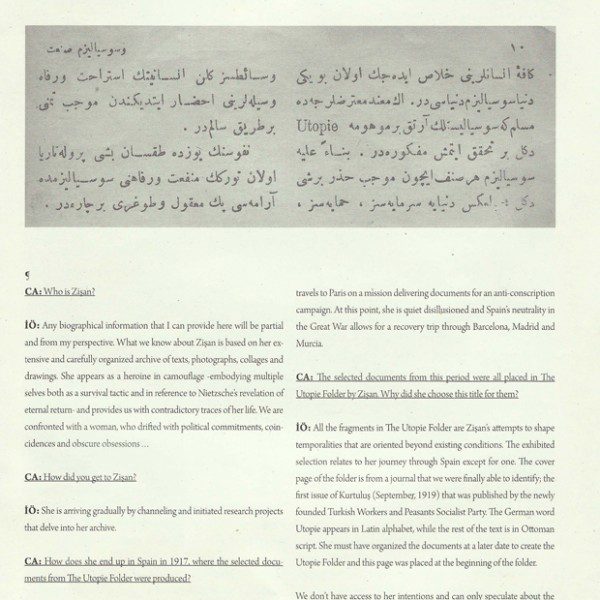 ١٠
وسوسياليزم صنعت
كافۀ انسانلرینی خلاص ایده جك اولان بو یكی
دنیا سوسیالیزم دنیاسی در. اك معند معترضلر جه ده
مسلم كه سوسیالیستلك آرتق بر موهومه Utopie
دكل بر تحقق ایتمش مفكوره در. بناءً علیه
سوسیالیزم هر صنف ایچون موجب حذر بر شی
دكل بالعكس دنیایه سرمایه سز، حمایه سز،
وسائطسز كلن انسانیتك استراحت ورفاه
وسیله لرینی احضار ایتدیكندن موجب تمنی
بر طریق سالم در.
نفوسنك یوزده طقسان بشی پرولەتاریا
اولان توركك منفعت ورفاهنی سوسیالیزمده
آرامه سی پك معقول وطوغری بر چاره در.
¶
CA: Who is Zişan?
İÖ: Any biographical information that I can provide here will be partial
and from my perspective. What we know about Zişan is based on her ex-
tensive and carefully organized archive of texts, photographs, collages and
drawings. She appears as a heroine in camouflage -embodying multiple
selves both as a survival tactic and in reference to Nietzsche's revelation of
eternal return- and provides us with contradictory traces of her life. We are
confronted with a woman, who drifted with political commitments, coin-
cidences and obscure obsessions ...
CA: How did you get to Zişan?
İÖ: She is arriving gradually by channeling and initiated research projects
that delve into her archive.
CA: How does she end up in Spain in 1917, where the selected docu-
ments from The Utopie Folder were produced?
travels to Paris on a mission delivering documents for an anti-conscription
campaign. At this point, she is quiet disillusioned and Spain's neutrality in
the Great War allows for a recovery trip through Barcelona, Madrid and
Murcia.
CA: The selected documents from this period were all placed in The
Utopie Folder by Zişan. Why did she choose this title for them?
İÖ: All the fragments in The Utopie Folder are Zişan's attempts to shape
temporalities that are oriented beyond existing conditions. The exhibited
selection relates to her journey through Spain except for one. The cover
page of the folder is from a journal that we were finally able to identify; the
first issue of Kurtuluş (September, 1919) that was published by the newly
founded Turkish Workers and Peasants Socialist Party. The German word
Utopie appears in Latin alphabet, while the rest of the text is in Ottoman
script. She must have organized the documents at a later date to create the
Utopie Folder and this page was placed at the beginning of the folder.
We don't have access to her intentions and can only speculate about the